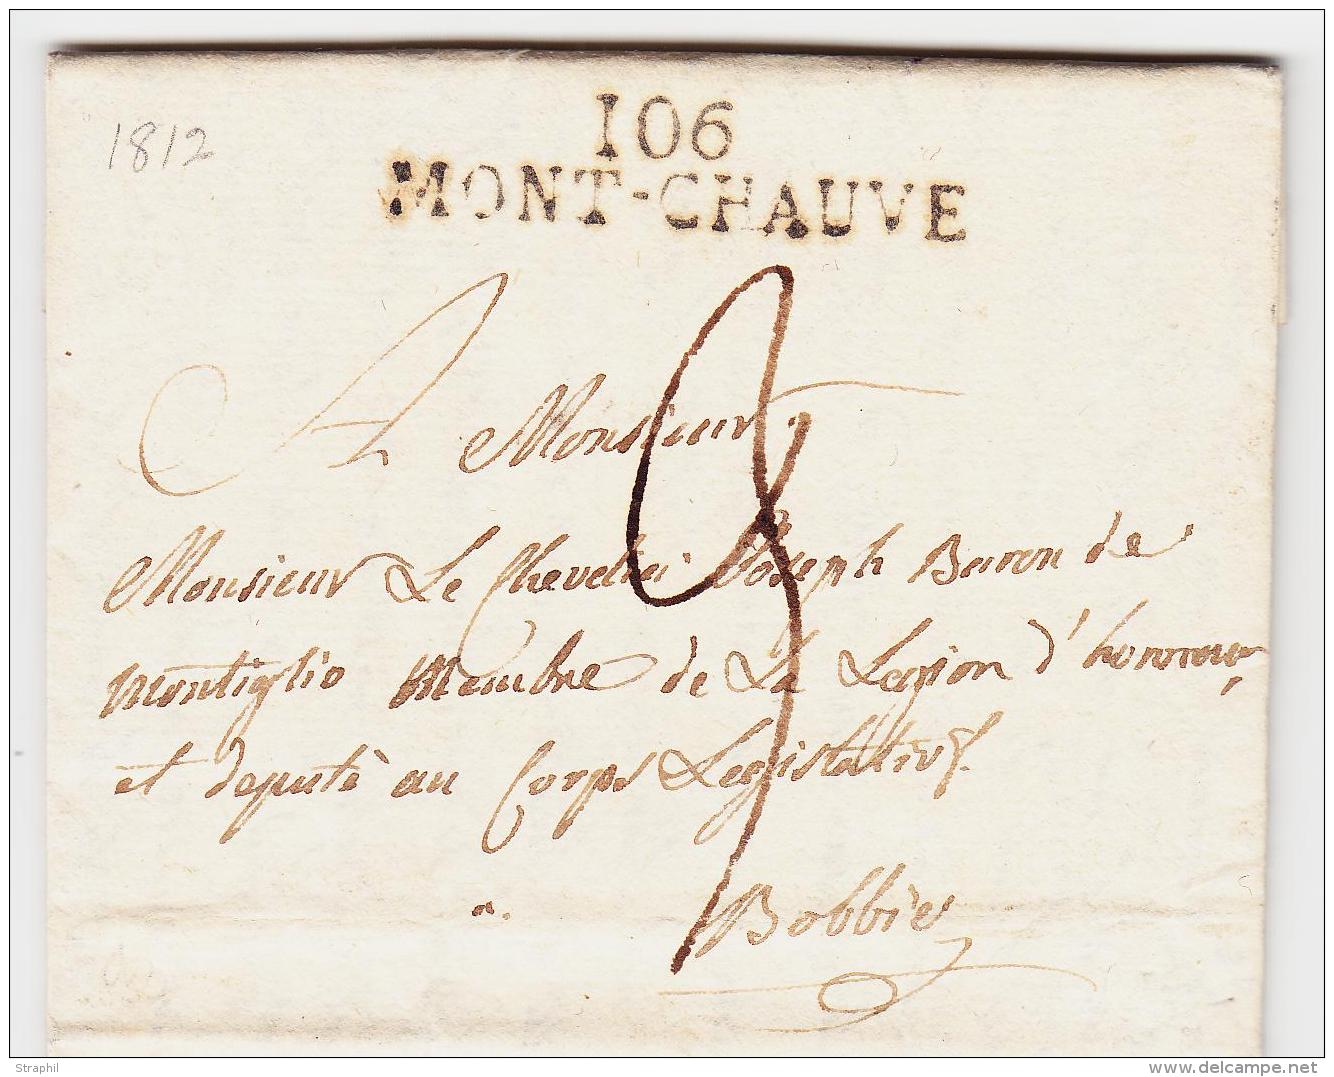 1812
106
MONT-CHAUVE
3
A Monsieur
Monsieur Le Chevalier Joseph Baron de
Montiglio Membre de La Legion d'honneur,
et deputè au Corps Legislativf.
a.
Bobbie
Straphil
www.delcampe.net